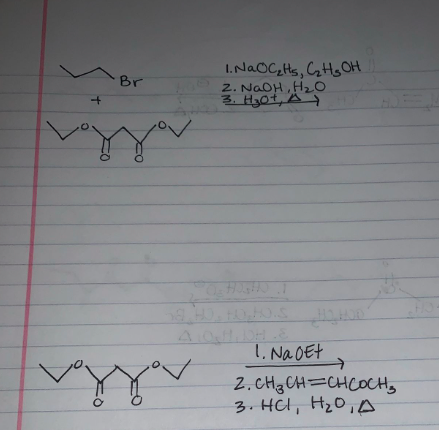 1. NaOC₂H₅, C₂H₅OH
Br
2. NaOH, H₂O
+
3. H₃O+, Δ
O O
O O
1. NaOEt
O O
2. CH₃CH=CHCOCH₃
O O
3. HCl, H₂O, Δ